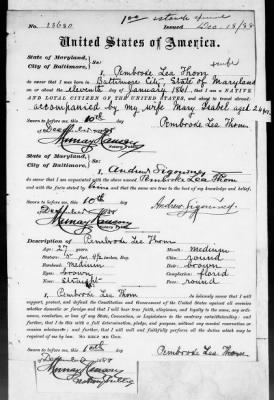 No. 13680
Issued Dec. 13/88
United States of America.
State of Maryland,
City of Baltimore, } Ss:
I, Pembroke Lea Thom
do swear that I was born in Baltimore City, State of Maryland
on or about the eleventh day of January 1861; that I am a NATIVE
AND LOYAL CITIZEN OF THE UNITED STATES, and about to travel abroad;
accompanied by my wife Mary Isabel aged 24 yrs.
Sworn to before me, this 10th
day of Dec 1888
Pembroke Lea Thom
Murray Hanson
Notary Public
State of Maryland,
City of Baltimore, } Ss:
I, Andrew
do swear that I am acquainted with the above named Pembroke Lea Thom
and with the facts stated by him and the same are true to the best of my knowledge and belief.
Sworn to before me, this 10th
day of Dec 1888
Murray Hanson
Notary Public
Description of Pembroke Lea Thom
Age: 27 years
Mouth: medium
Stature: 5 feet inches Eng.
Chin: round
Forehead: medium
Hair: brown
Eyes: brown
Complexion: florid
Nose: straight
Face: round
I, Pembroke Lea Thom do solemnly swear that I will
support, protect, and defend the Constitution and Government of the United States against all enemies
whether domestic or foreign; and that I will bear true faith, allegiance, and loyalty to the same, any ordi-
nance, resolution, or law of any State, Convention, or Legislature to the contrary notwithstanding; and
further, that I do this with a full determination, pledge, and purpose, without any mental reservation or
evasion whatsoever; and further, that I will well and faithfully perform all the duties which may be
required of me by law. So HELP ME GOD.
Sworn to before me, this 10th
day of Dec 1888
Pembroke Lea Thom
Murray Hanson
Notary Public